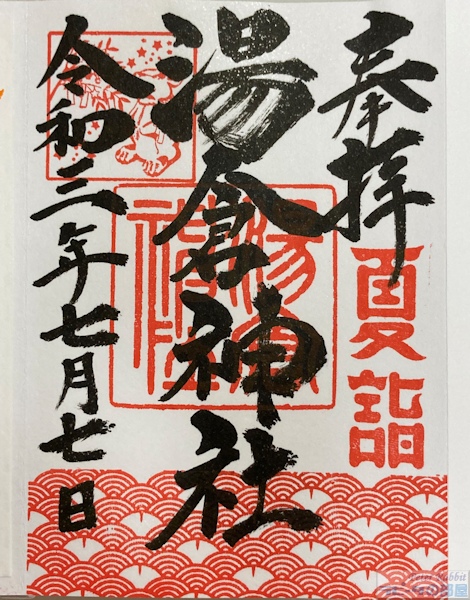 奉拝
夏詣
湯倉神社
湯倉神社
令和三年七月七日